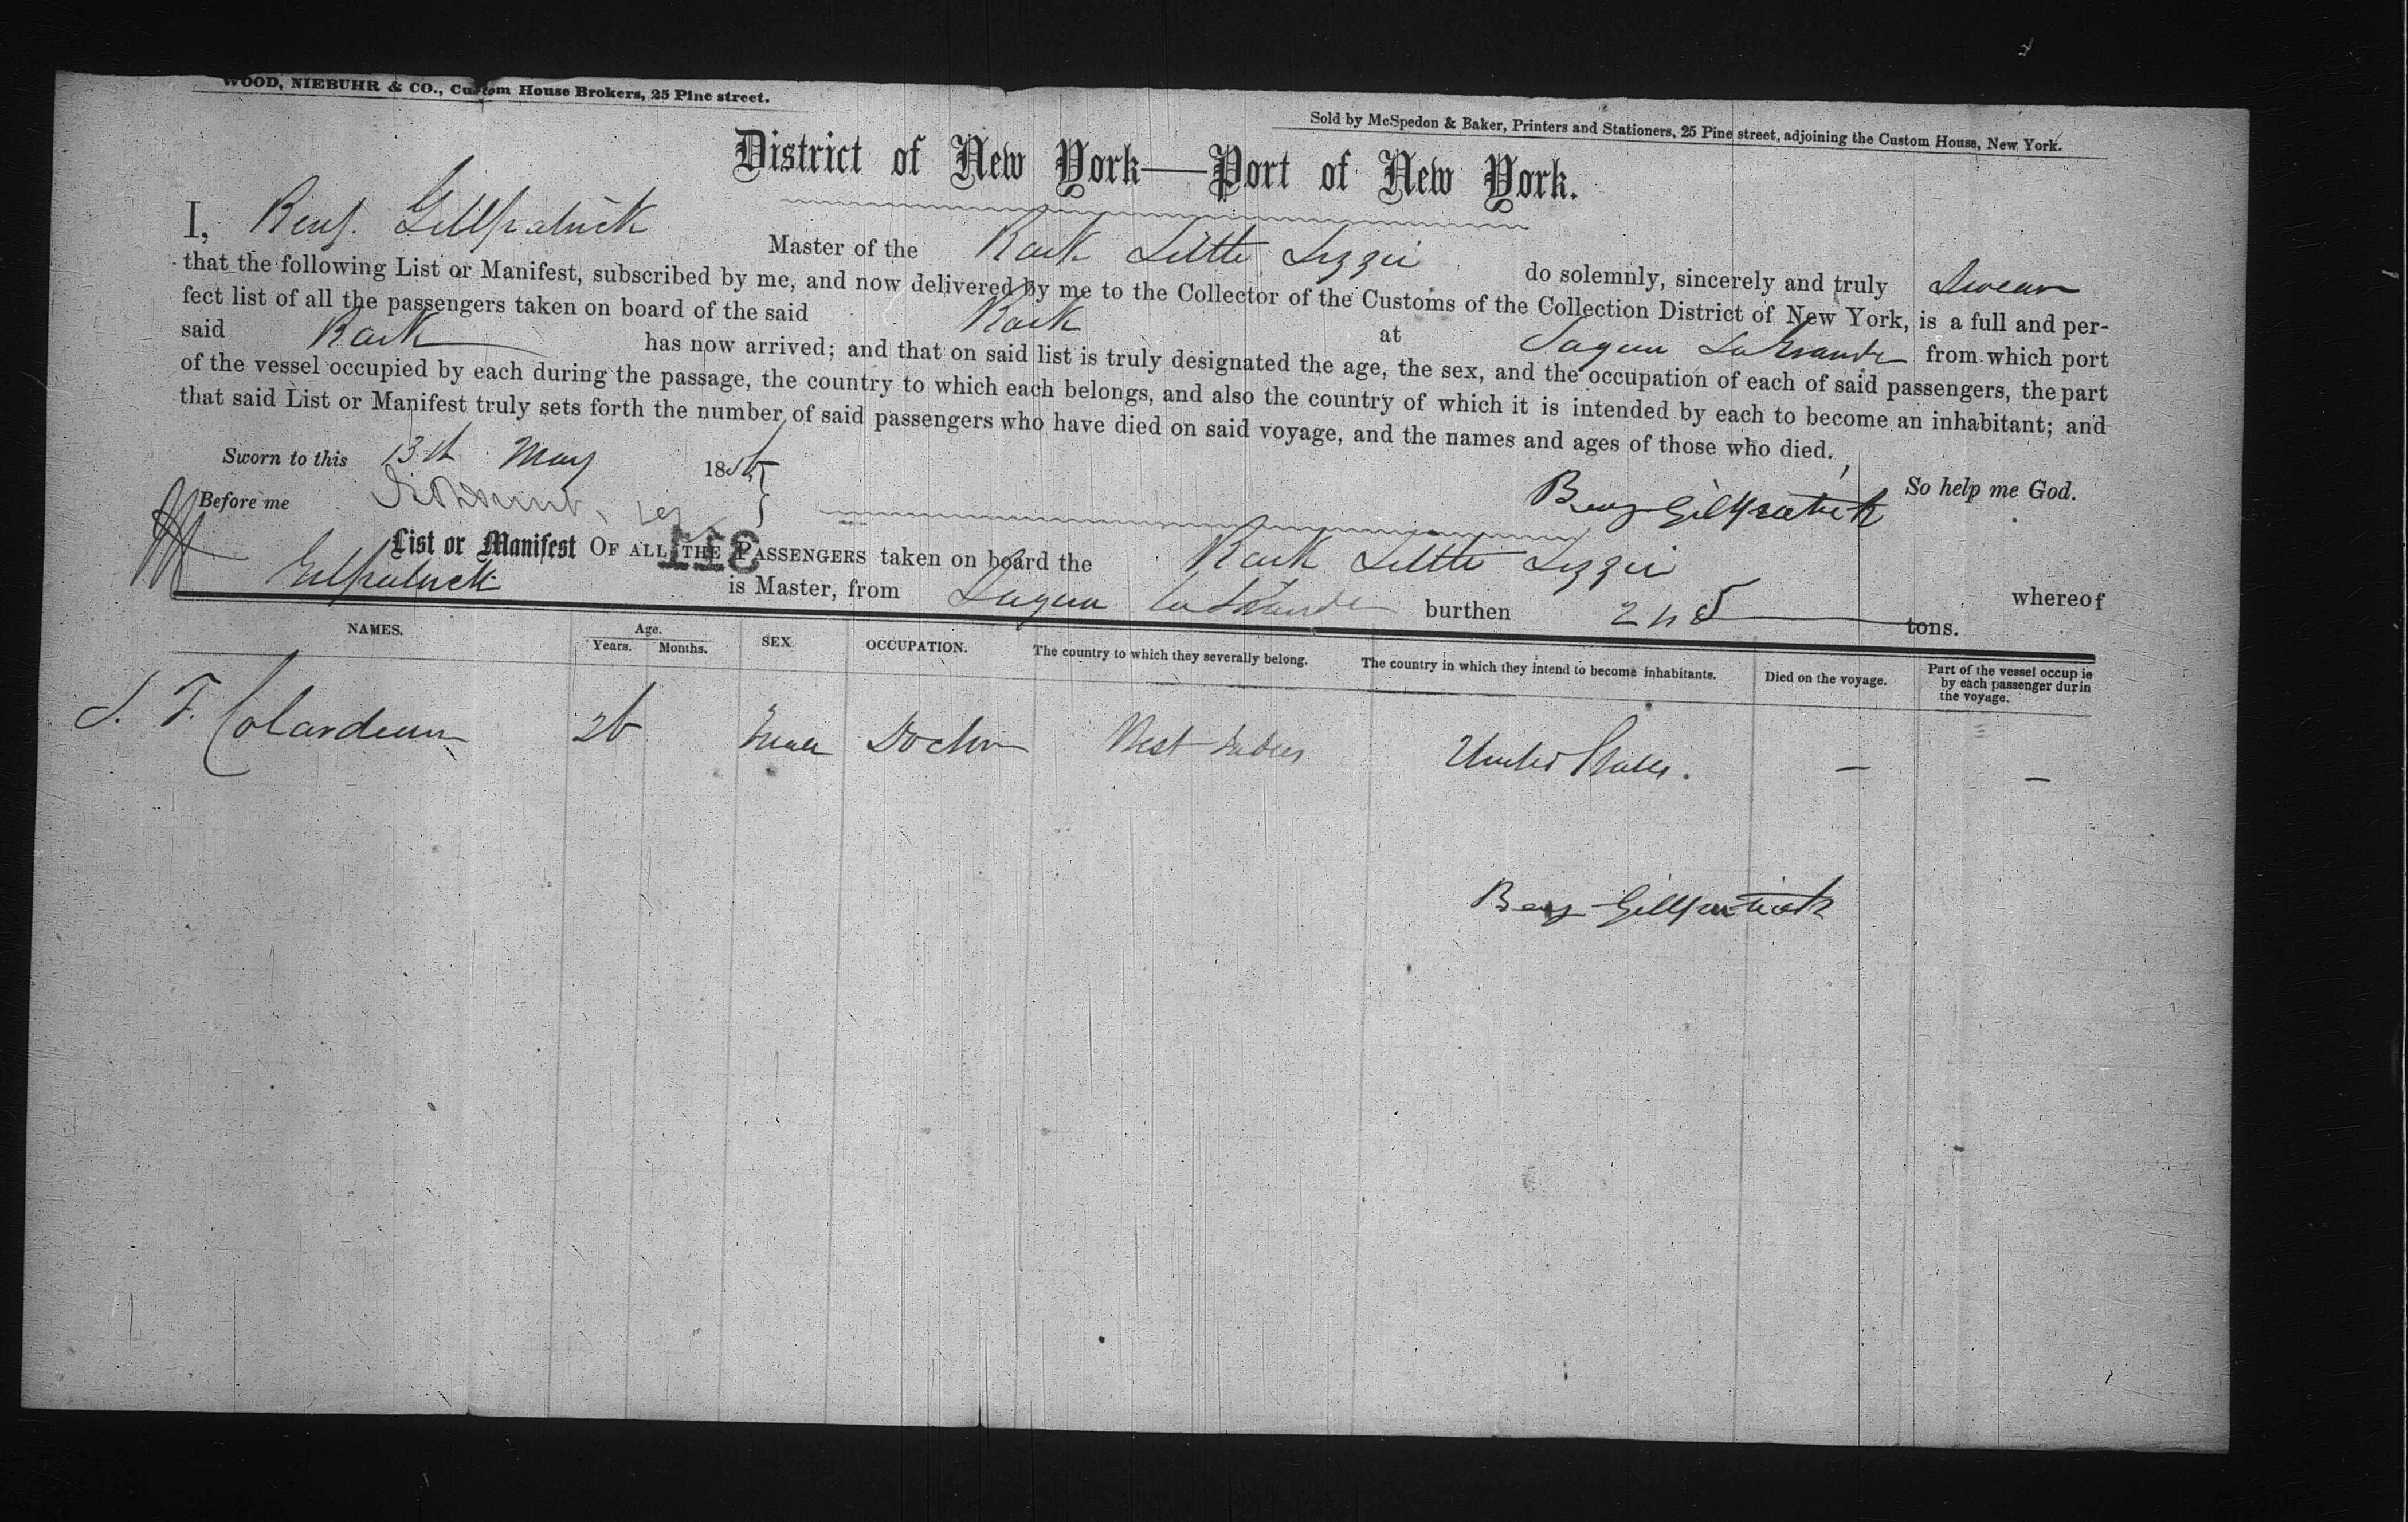 WOOD, NIEBUHR & CO., Custom House Brokers, 25 Pine street.
Sold by McSpedon & Baker, Printers and Stationers, 25 Pine street, adjoining the Custom House, New York.
District of New York—Port of New York.
I, Benj. Gillpatrick Master of the Bark Little Lizzie do solemnly, sincerely and truly swear
that the following List or Manifest, subscribed by me, and now delivered by me to the Collector of the Customs of the Collection District of New York, is a full and per-
fect list of all the passengers taken on board of the said Bark at Sagua La Grande from which port
said Bark has now arrived; and that on said list is truly designated the age, the sex, and the occupation of each of said passengers, the part
of the vessel occupied by each during the passage, the country to which each belongs, and also the country of which it is intended by each to become an inhabitant; and
that said List or Manifest truly sets forth the number of said passengers who have died on said voyage, and the names and ages of those who died.
Sworn to this 13th May 185
So help me God.
Before me
Benj Gillpatrick
List or Manifest OF ALL THE PASSENGERS taken on board the Bark Little Lizzie whereof
Gilpatrick is Master, from Sagua la Grande burthen tons.
NAMES. Age. Years. Months. SEX OCCUPATION. The country to which they severally belong. The country in which they intend to become inhabitants. Died on the voyage. Part of the vessel occupie by each passenger durin the voyage.
F. Colardeau 26 male Doctor West Indies United States. — —
Benj Gillpatrick